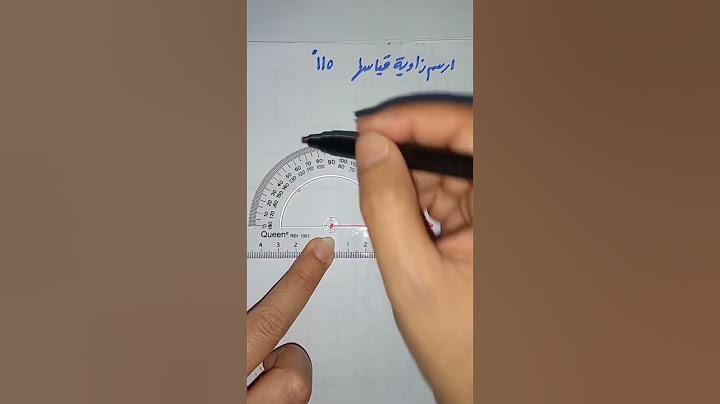 ارسم زاوية قياسها ١١٥°
20 30 40 50 60 70 90 100
150 140 130 120 110 100 80 70
Queen® REF. 1001
4 3 2 1 2